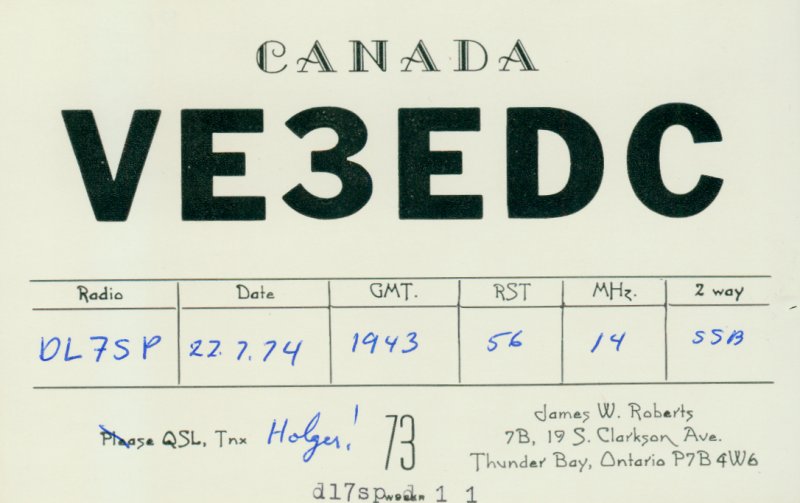 CANADA
VE3EDC
Radio Date GMT. RST MHz. 2 way
DL7SP 22.7.74 1943 56 14 SSB
Please QSL, Tnx Holger! 73
James W. Roberts
7B, 19 S. Clarkson Ave.
Thunder Bay, Ontario P7B 4W6
dl7sp d 1 1